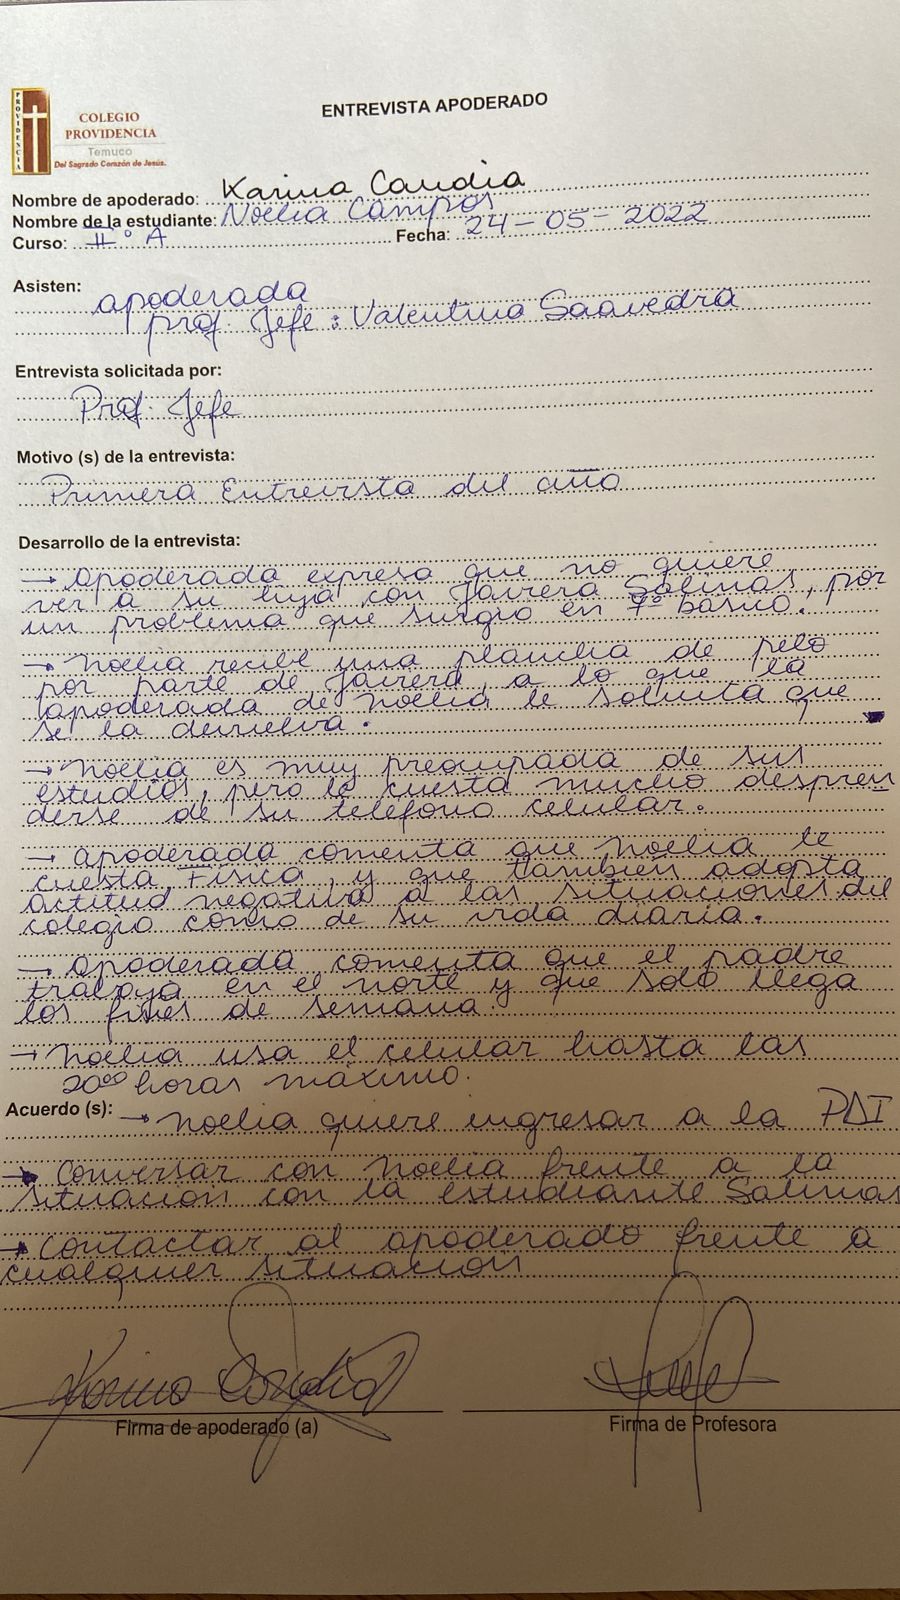 ENTREVISTA APODERADO
PROVIDENCIA
COLEGIO
PROVIDENCIA
Temuco
Del Sagrado Corazón de Jesús.
Nombre de apoderado: Karina Candia
Nombre de la estudiante: Noelia Campos
Curso: II° A Fecha: 24-05-2022
Asisten:
apoderada
prof. Jefe: Valentina Saavedra
Entrevista solicitada por:
Prof. Jefe
Motivo (s) de la entrevista:
Primera Entrevista del año
Desarrollo de la entrevista:
→ Apoderada expresa que no quiere
ver a su hija con Javiera Salinas, por
un problema que surgió en 7° básico.
→ Noelia recibe una plancha de pelo
por parte de Javiera, a lo que la
apoderada de Noelia le solicita que
se la devuelva.
→ Noelia es muy preocupada de sus
estudios, pero le cuesta mucho despren
derse de su teléfono celular.
→ Apoderada comenta que Noelia le
cuesta Física, y que también adopta
actitud negativa a las situaciones del
colegio como de su vida diaria.
→ Apoderada comenta que el padre
trabaja en el norte y que solo llega
los fines de semana.
→ Noelia usa el celular hasta las
20:00 horas máximo.
Acuerdo (s): → Noelia quiere ingresar a la PDI
→ Conversar con Noelia frente a la
situación con la estudiante Salinas
→ Contactar al apoderado frente a
cualquier situación
Karina Candia
Firma de apoderado (a) Firma de Profesora